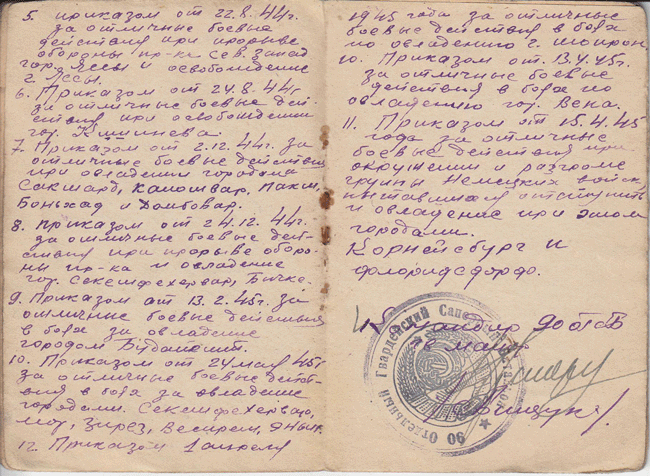 5. приказом от 22.8.44г.
за отличные боевые
действия при прорыве
обороны пр-ка сев. запад
гор. Яссы и освобождение
г. Яссы.
6. Приказом от 24.8.44г
за отличные боевые дей-
ствия при освобождении
гор. Кишинева.
7. Приказом от 2.12.44г. за
отличные боевые действия
при овладении городами
Сексард, Капошвар, Пакш,
Боньхад и Домбовар.
8. приказом от 24.12.44г.
за отличные боевые дей-
ствия при прорыве оборо-
ны пр-ка и овладение
гор. Секешфехервар, Бичке.
9. Приказом от 13.2.45г. за
отличные боевые действия
в боях за овладение
городом Будапешт.
10. Приказом от 24 мар 45г
за отличные боевые дейст-
вия в боях за овладение
городами. Секешфехервар,
Мор, Зирез, Веспрем,
12. Приказом 1 апреля
1945 года за отличные
боевые действия в боях
по овладению г. Шопрон.
10. Приказом от 13.4.45г.
за отличные боевые
действия в боях по
овладению гор. Вена.
11. Приказом от 15.4.45
года за отличные
боевые действия при
окружении и разгроме
группы Немецких войск,
отступить
и овладение при этом
городами.
Корнейсбург и
Флоридсдорф.
Командир 90 ОГСБ
майор
90 Отдельный Гвардейский Саперный Батальон